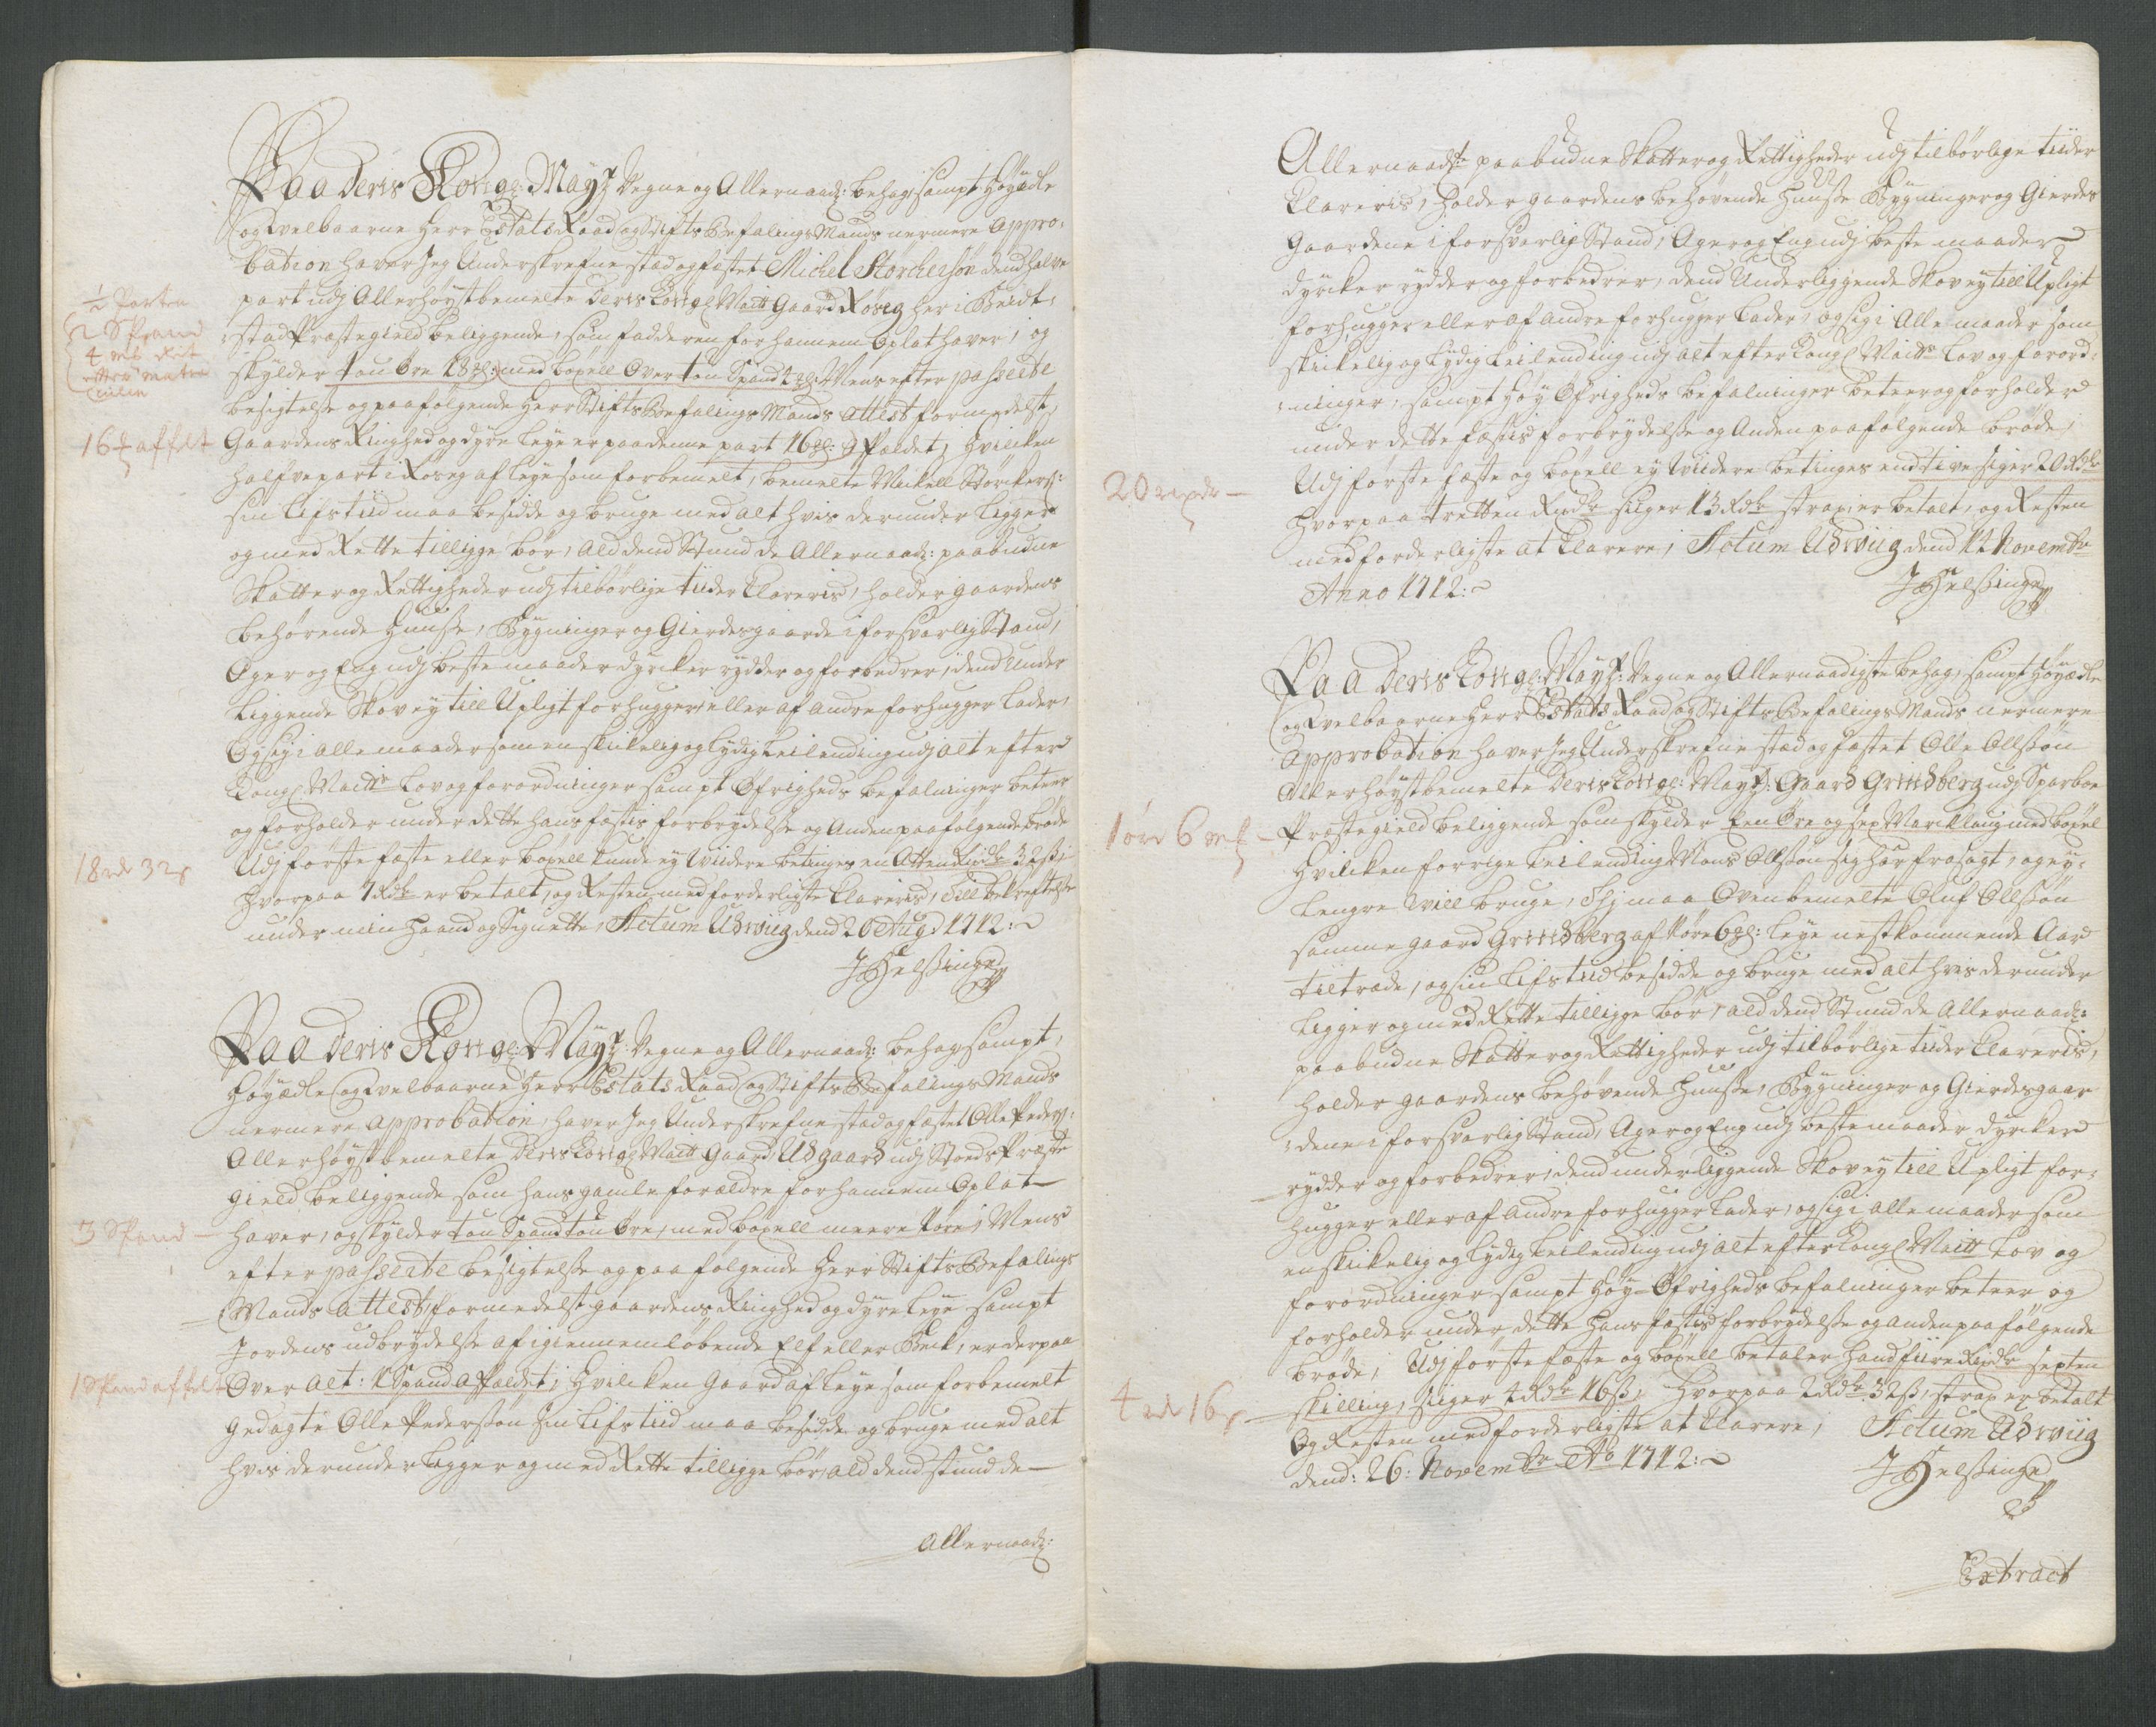 Paa Deris Kongl: Mayt: Vegne og Allernaad: behag, sampt Høyædle
og Velbaarne Herr Estats Raad og Stifts Befalings Mands nermere Appro-
bation haver Jeg Underskrefne stæd og fæstet Michel Storchersøn dend halve
part udj Allerhøystbemelte Deris Kongl Maitt Gaard Roseg her i Beidt-
stad Præstegield beliggende, som fadderen for hannem Oplat haver, og
½ Parten
2 Spand
4 ml
skylder tou Øre 18 ml: med boxell Over tou Spand 4 ml: Mens efter passerte
besigtelse og paafølgende Herr Stifts Befalings Mands Attest formedelst
16 ml affelt
Gaardens Ringhed og dyre Leye er paa denne part 16 ml: affældet, hvilcken
halfve part i Roseg af Leye som forbemelt, bemelte Mickell Størckers:
sin Lifs tiid maa besidde og bruge med alt hvis derunder Ligger
og med Rette tilligge bør, Ald dend Stund de Allernaad: paabudne
Skatter og Rettigheder udj tilbørlige tiider Clareris, holder gaardens
behørende Huusse, Bygninger og Gierdesgaarde i forsvarlig Stand,
Ager og Eng udj beste maader dyrcker rydder og forbedrer, dend Under
Liggende Skov ey till Upligt forhugger, eller af andre forhugger Lader,
Og sig i alle maader som en skickelig og Lydig Leilending udj alt efter
Kongl Maitts Lov og forordninger sampt Øfrigheds befalninger beteer
og forholder under dette hans fæstis forbrydelse og Anden paafølgende brøde
18 rd 32 s
Udj første fæste eller boxell kunde ey viidere betinges en Atten Rixdr 32 ß,
hvorpaa 7 Rdr er betalt, og Resten med forderligste Clareris, Till bekreftelse
under min Haand og Signette, Actum Udvviig dend 20 Aug 1712:
J Helssing
Paa Deris Kongl: Mayt: Vegne og Allernaad: behag, sampt,
Høyædle og Velbaarne Herr Estats Raad og Stifts Befalings Mands
nermere approbation, haver Jeg Underskrefne stæd og fæstet Olle Peders:
Allerhøystbemelte Deris Kongl Maitt Gaard Udgaard udj Stods Præste
gield beliggende som hans gamle forældre for hannem Oplat
3 Spand
haver, og skylder tou Spand tou Øre, med boxell meere 1 øre, Mens
efter passerte besigtelse og paafølgende Herr Stifts Befalings
Mands Attest, formedelst gaardens Ringhed og dyre Leye sampt
Jordens udbrydelse af igiennemløbende Elf eller Beck, er derpaa
1 Spand affelt
Over alt: 1 Spand affældet, hvilcken gaard af Leye som forbemelt
gedagte Olle Pedersøn sin Lifs tiid maa besidde og bruge med alt
hvis derunder Ligger og med Rette tilligge bør, ald dend stund de
Allernaad:
Allernaadt: paabudne Skatter og Rettigheder udj tilbørlige tiider
Clareris, holder gaardens behøvende Huusse Bygninger og Gierdes
Gaardene i forsvarlig Stand, Ager og Eng udj beste maader
dyrcker rydder og forbedrer, dend Underliggende Skov ey till Upligt
forhugger eller af andre forhugger Lader, og sig i Alle maader som
skickelig og Lydig Leilending udj alt efter Kongl Maitts Lov og forord-
ninger, sampt Høy Øfrigheds befalninger beteer og forholder
under dette fæstis forbrydelse og Anden paafølgende brøde,
20 rixdr
Udj første fæste og boxell ey viidere betinges end tive siger 20 Rdr
hvorpaa tretten Rixdr siger 13 Rdr strax er betalt, og Resten
med forderligste at Clarere, Actum Udvviig dend 12 Novembr
Anno 1712:
J Helssing
Paa Deris Kongl: Mayt: Vegne og Allernaadigste behag, sampt Høyædle
og Velbaarne Herr Estats Raad og Stifts Befalings Mands nermere
Approbation haver Jeg Underskrefne stæd og fæstet Olle Ollssøn
Allerhøystbemelte Deris Kongl: Mayt: Gaard Grindberg udj Sparboe
1 øre 6 ml
Præstegield beliggende som skylder Een Øre og sex Marcklaug med boxel
hvilcken forrige Leilending Mons Ollssøn sig hâr frasagt, og ey
Lengre vill bruge, Thj maa Ovenbemelte Oluf Ollssøn
samme gaard Grindberg af 1 øre 6 ml: Leye nestkommende Aar
tiltræde, og sin Lifs tiid besidde og bruge med alt hvis derunder
Ligger og med Rette tilligge bør, ald dend Stund de Allernaad:
paabudne Skatter og Rettigheder udj tilbørlige tiider Clareris,
holder gaardens behøvende Huusse, Bygninger og Gierdesgaar
dene i forsvarlig Stand, Ager og Eng udj beste maader dyrcker
rydder og forbedrer, dend underliggende Skov ey till Upligt for-
hugger eller af andre forhugger Lader, og sig i alle maader som
en skickelig og Lydig Leilending udj alt efter Kongl Maitt Lov og
forordninger sampt Høy Øfrigheds befalninger beteer og
forholder under dette hans fæstis forbrydelse og anden paafølgende
brøde, Udj første fæste og boxell betaler hand fiire Rixdr sexten
4 rd 16 s
skilling, siger 4 Rdr 16 ß, hvorpaa 2 Rdr 32 ß, strax er betalt
Og Resten med forderligste at Clarere, Actum Udvviig
dend: 26: Novembr Ao 1712:
J Helssing
Extract